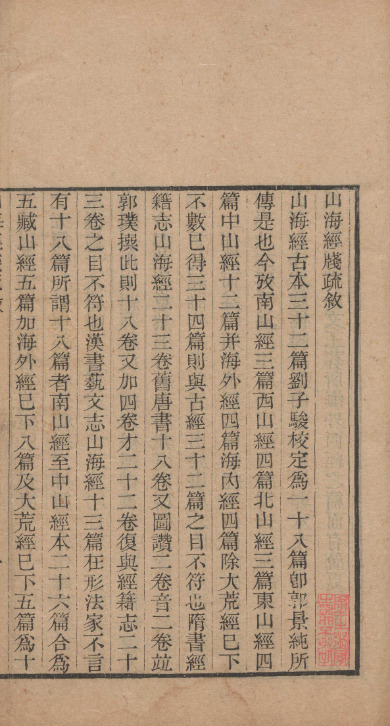 山海經牋疏敘
山海經古本三十二篇劉子駿校定爲一十八篇卽郭景純所
傳是也今攷南山經三篇西山經四篇北山經三篇東山經四
篇中山經十二篇并海外經四篇海內經四篇除大荒經已下
不數已得三十四篇則與古經三十二篇之目不符也隋書經
籍志山海經二十三卷舊唐書十八卷又圖讚二卷音二卷竝
郭璞撰此則十八卷又加四卷才二十二卷復與經籍志二十
三卷之目不符也漢書藝文志山海經十三篇在形法家不言
有十八篇所謂十八篇者南山經至中山經本二十六篇合爲
五臧山經五篇加海外經已下八篇及大荒經已下五篇爲十